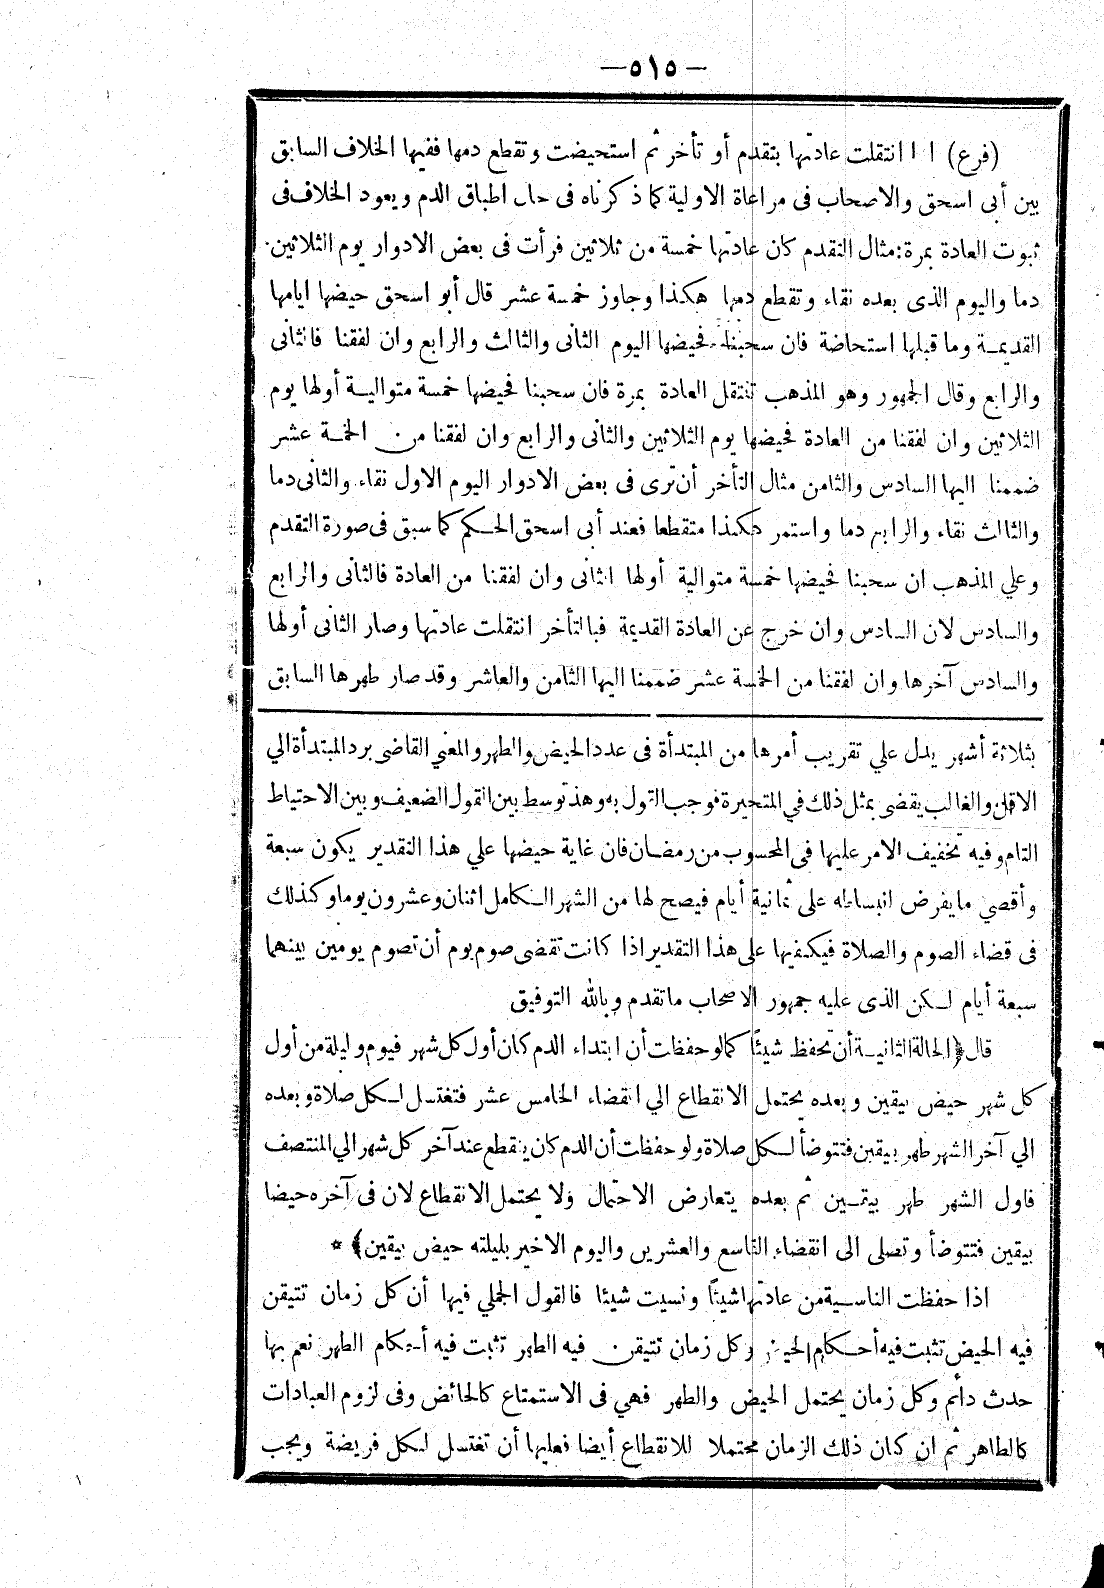 — ٥١٥ —
(فرع) اذا انتقلت عادتها بتقدم أو تأخر ثم استحيضت وتقطع دمها ففيها الخلاف السابق
بين أبى اسحق والاصحاب فى مراعاة الاولية كما ذكرناه فى حال اطباق الدم ويعود الخلاف فى
ثبوت العادة بمرة: مثال التقدم كان عادتها خمسة من ثلاثين فرأت فى بعض الادوار يوم الثلاثين
دما واليوم الذى بعده نقاء وتقطع دمها هكذا وجاوز خمسة عشر قال أبو اسحق حيضها ايامها
القديمة وما قبلها استحاضة فان سحبنا فحيضها اليوم الثانى والثالث والرابع وان لفقنا فالثانى
والرابع وقال الجمهور وهو المذهب تنتقل العادة بمرة فان سحبنا فحيضها خمسة متوالية أولها يوم
الثلاثين وان لفقنا من العادة فحيضها يوم الثلاثين والثانى والرابع وان لفقنا من الخمسة عشر
ضممنا اليها السادس والثامن مثال التأخر أن ترى فى بعض الادوار اليوم الاول نقاء والثانى دما
والثالث نقاء والرابع دما واستمر هكذا متقطعا فعند أبى اسحق الحكم كما سبق فى صورة التقدم
وعلي المذهب ان سحبنا فحيضها خمسة متوالية أولها الثانى وان لفقنا من العادة فالثانى والرابع
والسادس لان السادس وان خرج عن العادة القديمة فبالتأخر انتقلت عادتها وصار الثانى أولها
والسادس آخرها وان لفقنا من الخمسة عشر ضممنا اليها الثامن والعاشر وقد صار طهرها السابق
بثلاثة أشهر يدل علي تقريب أمرها من المبتدأة فى عدد الحيض والطهر والمعني القاضى برد المبتدأة الي
الاقل والغالب يقضى بمثل ذلك في المتحيرة فوجب القول به وهذ توسط بين القول الضعيف وبين الاحتياط
التام وفيه تخفيف الامر عليها فى المحسوب من رمضان فان غاية حيضها علي هذا التقدير يكون سبعة
وأقصي ما يفرض انبساطه على ثمانية أيام فيصح لها من الشهر الكامل اثنان وعشرون يوما وكذلك
فى قضاء الصوم والصلاة فيكفيها على هذا التقدير اذا كانت تقضى صوم يوم أن تصوم يومين بينهما
سبعة أيام لكن الذى عليه جمهور الاصحاب ما تقدم وبالله التوفيق
قال ﴿الحالة الثانية أن تحفظ شيئاً كما لو حفظت أن ابتداء الدم كان أول كل شهر فيوم وليلة من أول
كل شهر حيض بيقين وبعده يحتمل الانقطاع الي انقضاء الخامس عشر فتغتسل لكل صلاة وبعده
الي آخر الشهر طهر بيقين فتتوضأ لكل صلاة ولو حفظت أن الدم كان ينقطع عند آخر كل شهر الي المنتصف
فاول الشهر طهر بيقين ثم بعده يتعارض الاحتمال ولا يحتمل الانقطاع لان فى آخره حيضا
بيقين فتتوضأ وتصلى الى انقضاء التاسع والعشرين واليوم الاخير بليلته حيض بيقين﴾ *
اذا حفظت الناسية من عادتها شيئاً ونسيت شيئا فالقول الجملي فيها أن كل زمان تتيقن
فيه الحيض تثبت فيه أحكام الحيض وكل زمان تتيقن فيه الطهر تثبت فيه أحكام الطهر نعم بها
حدث دائم وكل زمان يحتمل الحيض والطهر فهي فى الاستمتاع كالحائض وفى لزوم العبادات
كالطاهر ثم ان كان ذلك الزمان محتملا للانقطاع أيضا فعليها أن تغتسل لكل فريضة ويجب